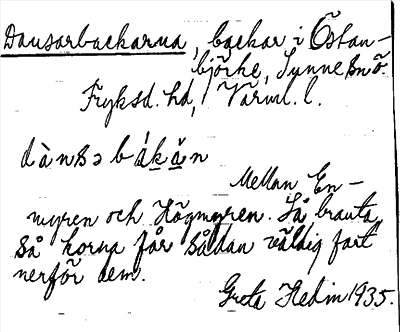 Dansarbackarna, backar i Östan-
björke, Sunne sn ö.
Fryksd. hd, Värml. l.
dànsɔbákản
Mellan En-
myren och Högmyren. Så branta
så korna får sådan väldig fart
nerför dem.
Greta Hedin 1935.